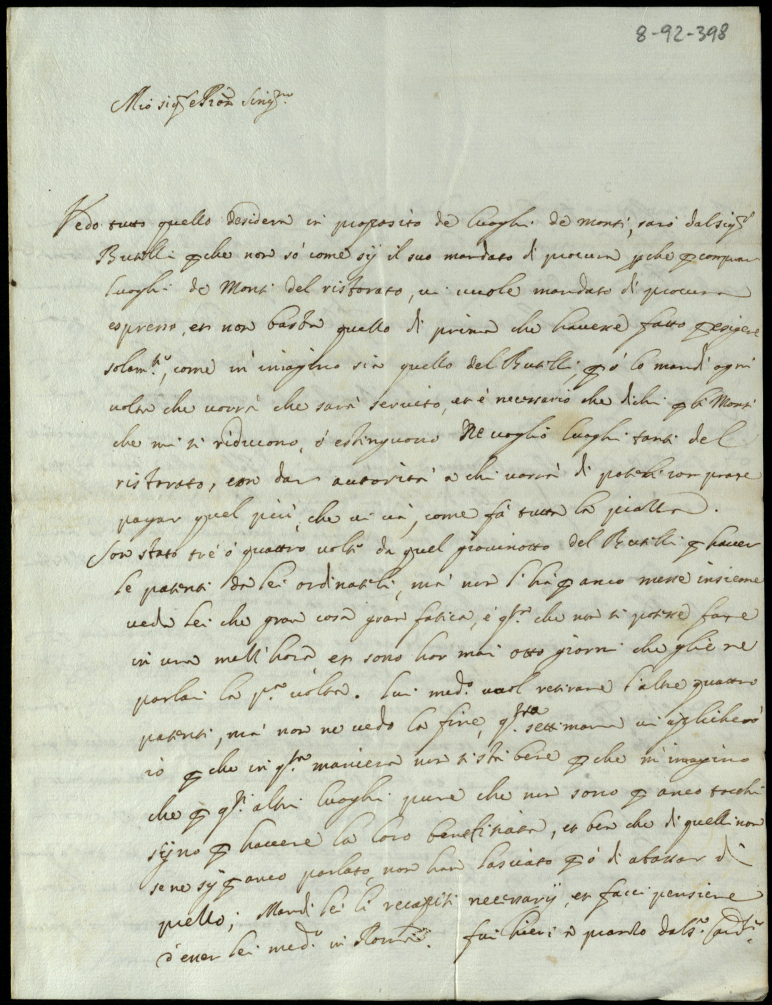 8-92-398
Mio sig.r e Pron Sing.mo
Vedo tutto quello desidera in proposito de luoghi de monti, sarò dal sig.r
Butilli p che non sò come sij il suo mandato di procura p che p comprar
luoghi de Monti del ristorato, vi vuole mandato di procura
espresso, et non basta quello di prima che havesse fatto p esigere
solam.te, come m'imagino sia quello del Butilli p ò lo mandi ogni
volta che vorrà che sarà servito, et è necessario che dichi p li Monti
che mi si riducono, ò estinguono ne voglio luoghi tanti del
ristorato, con dar autorità a chi vorrà di poterli comprare
pagar quel più, che vi và, come fà tutta la piazza.
Son stato trè ò quattro volte da quel giovinotto del Butilli p haver
le patenti da lei ordinateli, mà non l'hà p anco messe insieme
veda lei che gran cosa gran fatica, è q.sta che non si potesse fare
in una mezz'hora et sono hor mai otto giorni che gliè ne
parlai la p.a volta. lui med.o vuol retirare l'altre quattro
patenti, mà non ne vedo la fine, q.sta settimana vi applicherò
io p che in q.sta maniera non si stà bene p che m'imagino
che p q.li altri luoghi pure che non sono p anco tocchi
sijno p havere la loro beneficiata, et ben che di quelli non
se ne sij p anco parlato non han lasciato p ò di abassar di
quello; Mandi lei li recapiti necessarij, et facci pensiere
d'esser lei med.o in Roma. fui hieri à pranzo dal s.r